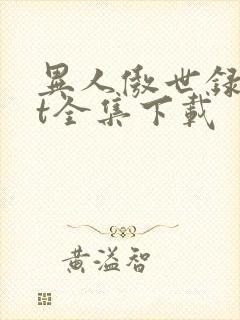 異人傲世録
t全集下載
黄溢智